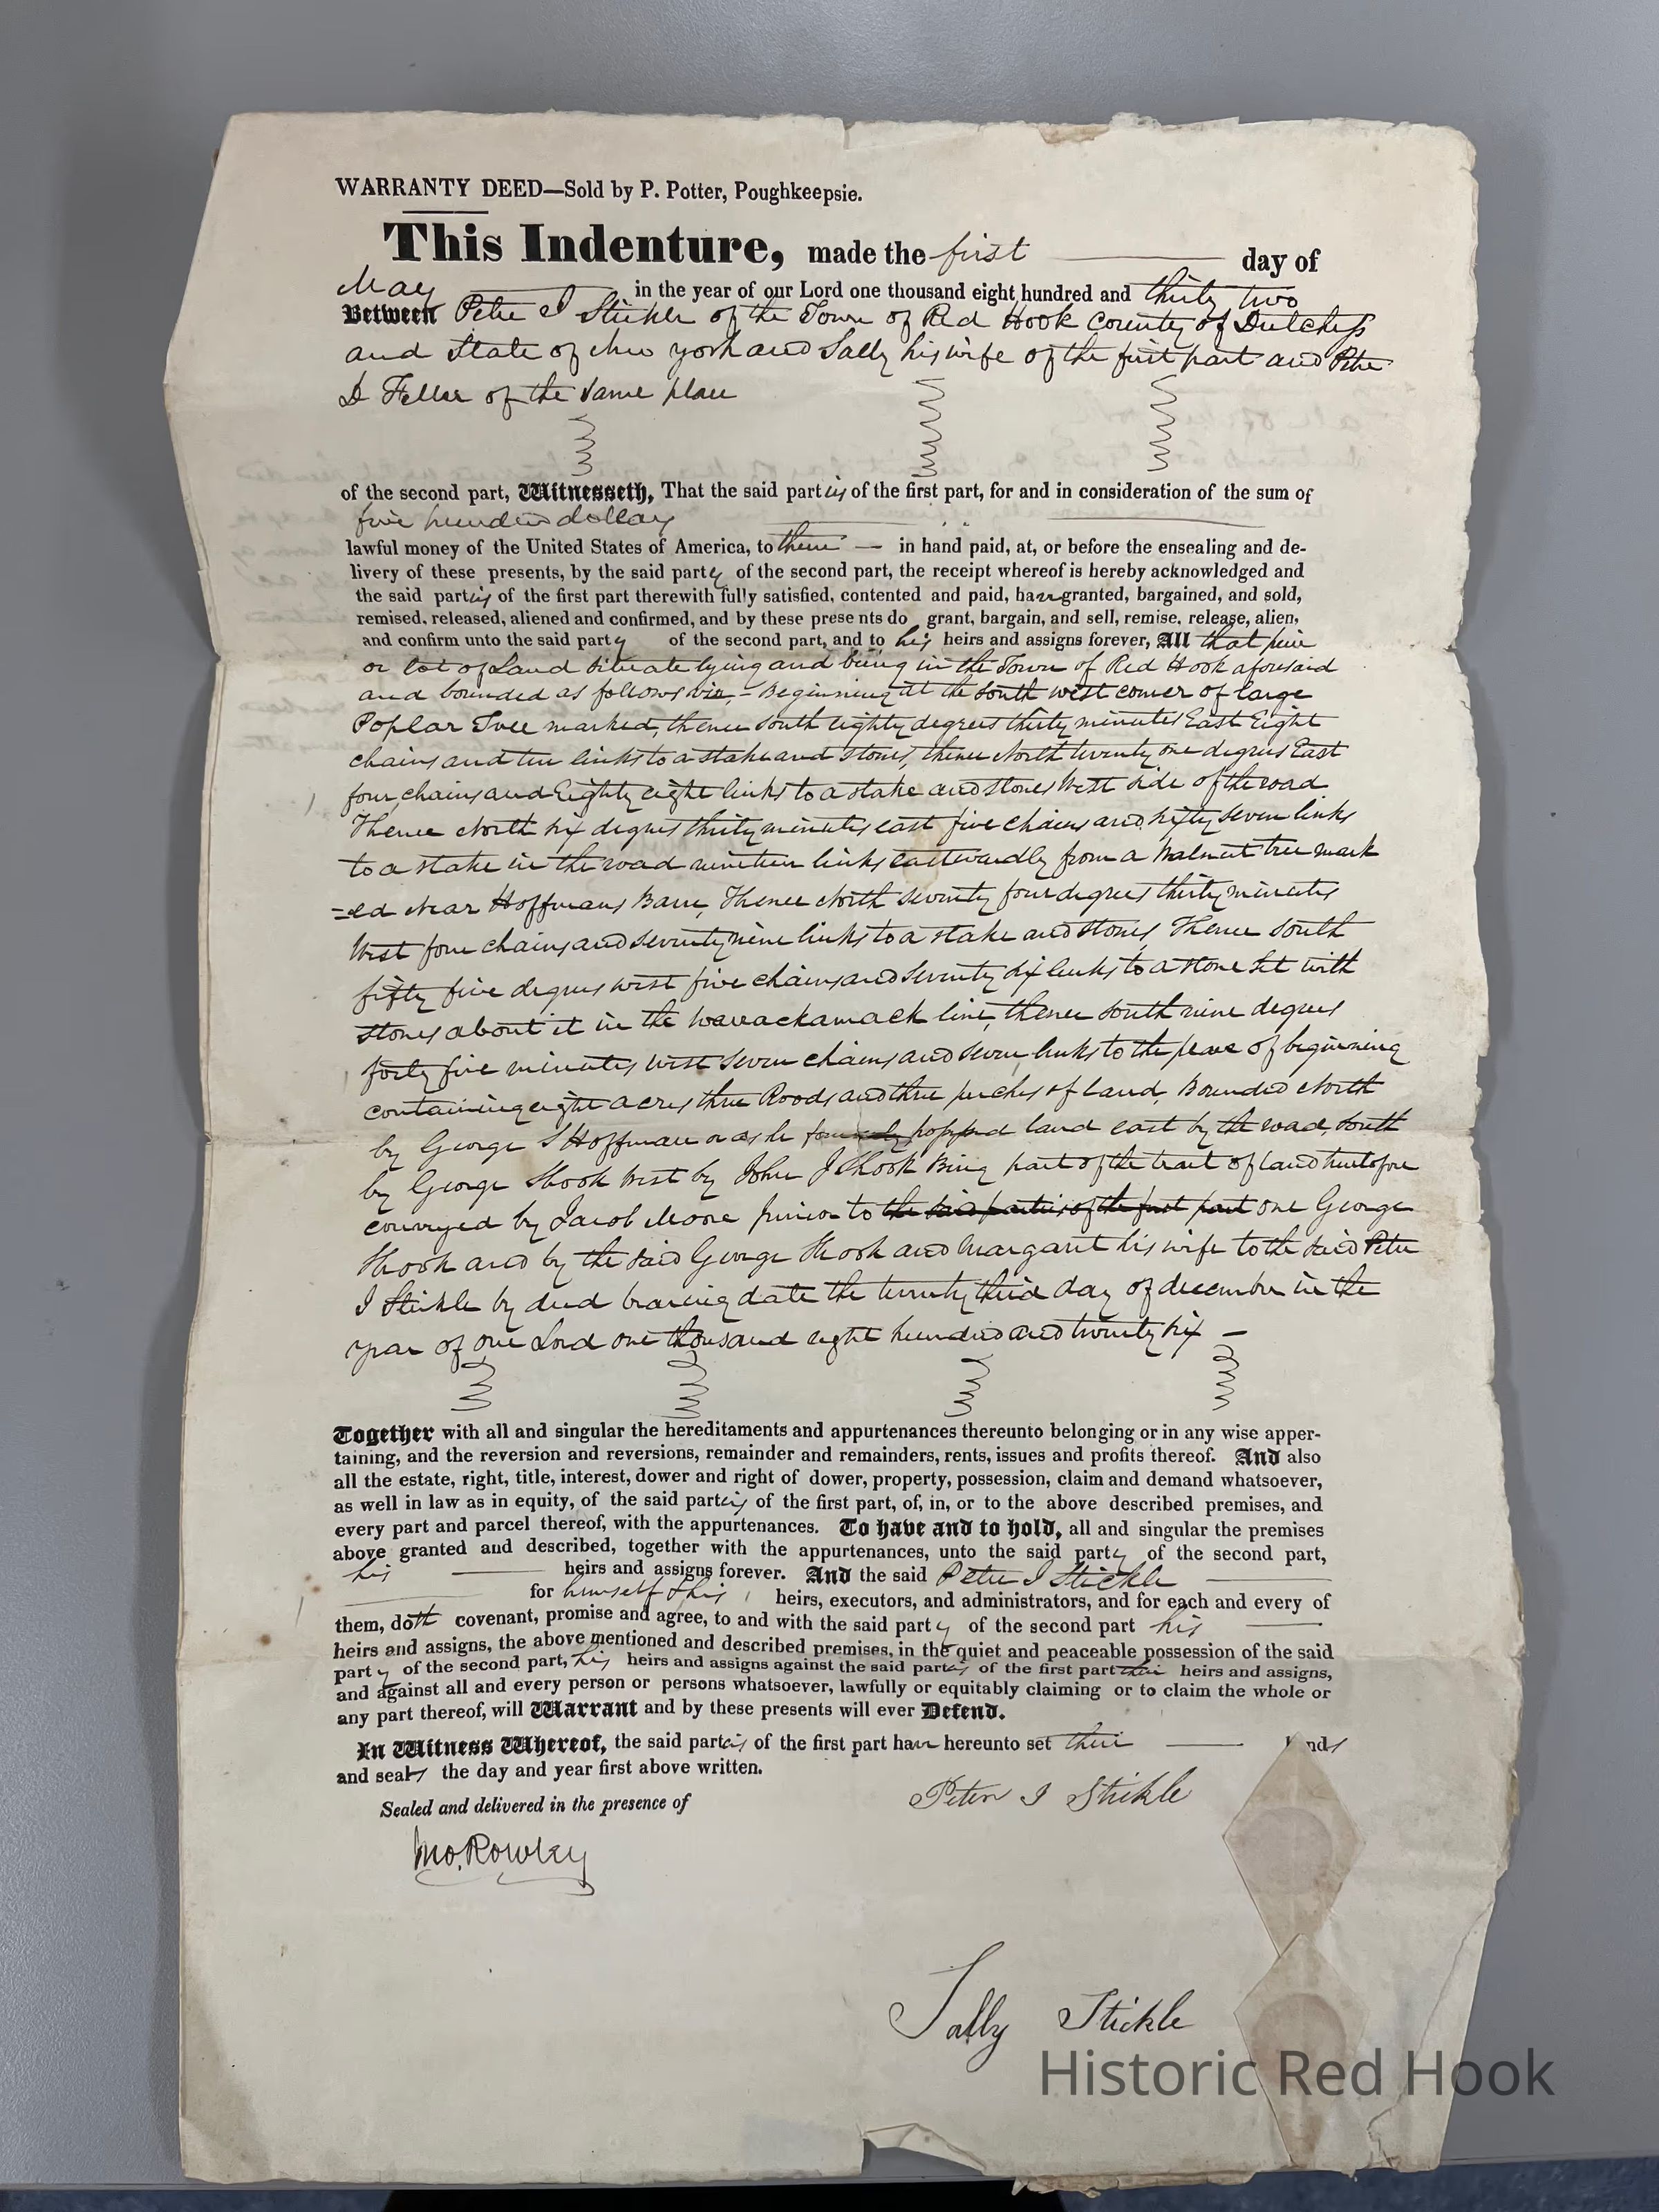 WARRANTY DEED—Sold by P. Potter, Poughkeepsie.
This Indenture, made the first day of
May in the year of our Lord one thousand eight hundred and thirty two
Between Peter I Stickle of the Town of Red Hook County of Dutchess
and State of New York and Sally his wife of the first part and Peter
D Feller of the same place
of the second part, Witnesseth, That the said parties of the first part, for and in consideration of the sum of
five hundred dollars
lawful money of the United States of America, to them — in hand paid, at, or before the ensealing and de-
livery of these presents, by the said party of the second part, the receipt whereof is hereby acknowledged and
the said parties of the first part therewith fully satisfied, contented and paid, have granted, bargained, and sold,
remised, released, aliened and confirmed, and by these presents do grant, bargain, and sell, remise, release, alien,
and confirm unto the said party of the second part, and to his heirs and assigns forever, All that piece
or lot of Land situate lying and being in the Town of Red Hook aforesaid
and bounded as follows viz, - Beginning at the South west corner of large
Poplar Tree marked, thence South eighty degrees thirty minutes East Eight
chains and ten links to a stake and stones, thence North twenty one degrees East
four chains and Eighty eight links to a stake and stones West side of the road
Thence North six degrees thirty minutes east five chains and sixty seven links
to a stake in the road nineteen links eastwardly from a Walnut tree mark
=ed near Hoffmans Barn, Thence North seventy four degrees thirty minutes
West four chains and seventy nine links to a stake and stones, Thence South
fifty five degrees west five chains and seventy six links to a stone set with
stones about it in the wavackamack line, thence south nine degrees
forty five minutes west seven chains and seven links to the place of beginning
containing eight acres three Roods and three perches of land, Bounded North
by George S Hoffman or as he formerly land east by the road, South
by George Shook West by John J Shook Being part of the tract of land heretofore
conveyed by Jacob Moore junior to the said parties of the first part one George
Shook and by the said George Shook and Margaret his wife to the said Peter
I Stickle by deed bearing date the twenty third day of december in the
year of our Lord one thousand eight hundred and twenty six —
Together with all and singular the hereditaments and appurtenances thereunto belonging or in any wise apper-
taining, and the reversion and reversions, remainder and remainders, rents, issues and profits thereof. And also
all the estate, right, title, interest, dower and right of dower, property, possession, claim and demand whatsoever,
as well in law as in equity, of the said parties of the first part, of, in, or to the above described premises, and
every part and parcel thereof, with the appurtenances. To have and to hold, all and singular the premises
above granted and described, together with the appurtenances, unto the said party of the second part,
his heirs and assigns forever. And the said Peter I Stickle
for himself & his heirs, executors, and administrators, and for each and every of
them, doth covenant, promise and agree, to and with the said party of the second part his
heirs and assigns, the above mentioned and described premises, in the quiet and peaceable possession of the said
party of the second part, his heirs and assigns against the said parties of the first part their heirs and assigns,
and against all and every person or persons whatsoever, lawfully or equitably claiming or to claim the whole or
any part thereof, will Warrant and by these presents will ever Defend.
In Witness Whereof, the said parties of the first part have hereunto set their hands
and seals the day and year first above written.
Sealed and delivered in the presence of
Peter I Stickle
Jno. Rowley
Sally Stickle
Historic Red Hook